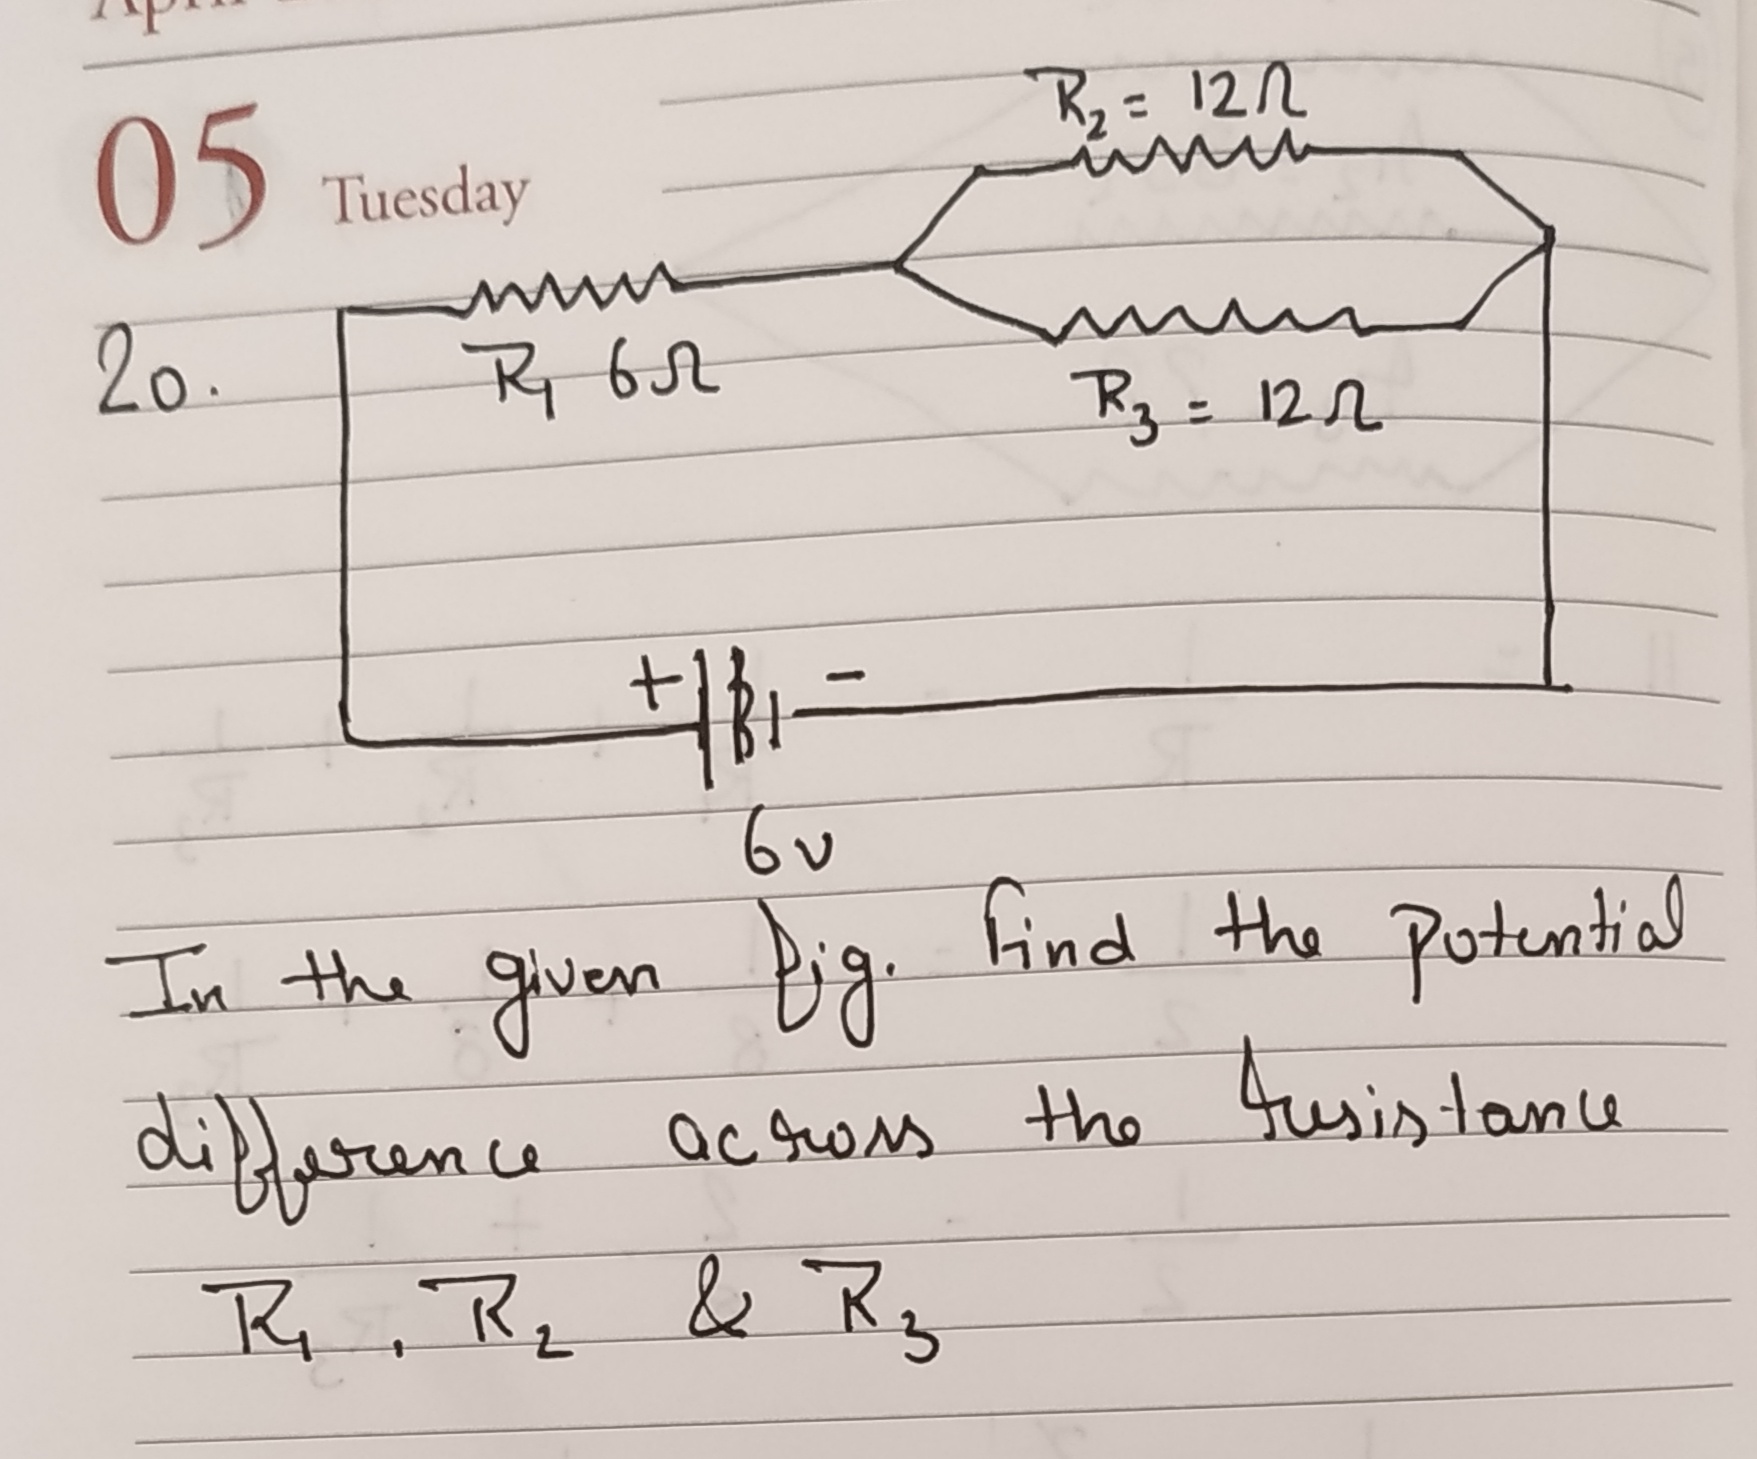 05 Tuesday
R₂ = 12Ω
20.
R₁ 6Ω
R₃ = 12Ω
+ -
6v
In the given fig. find the potential
difference across the resistance
R₁, R₂ & R₃